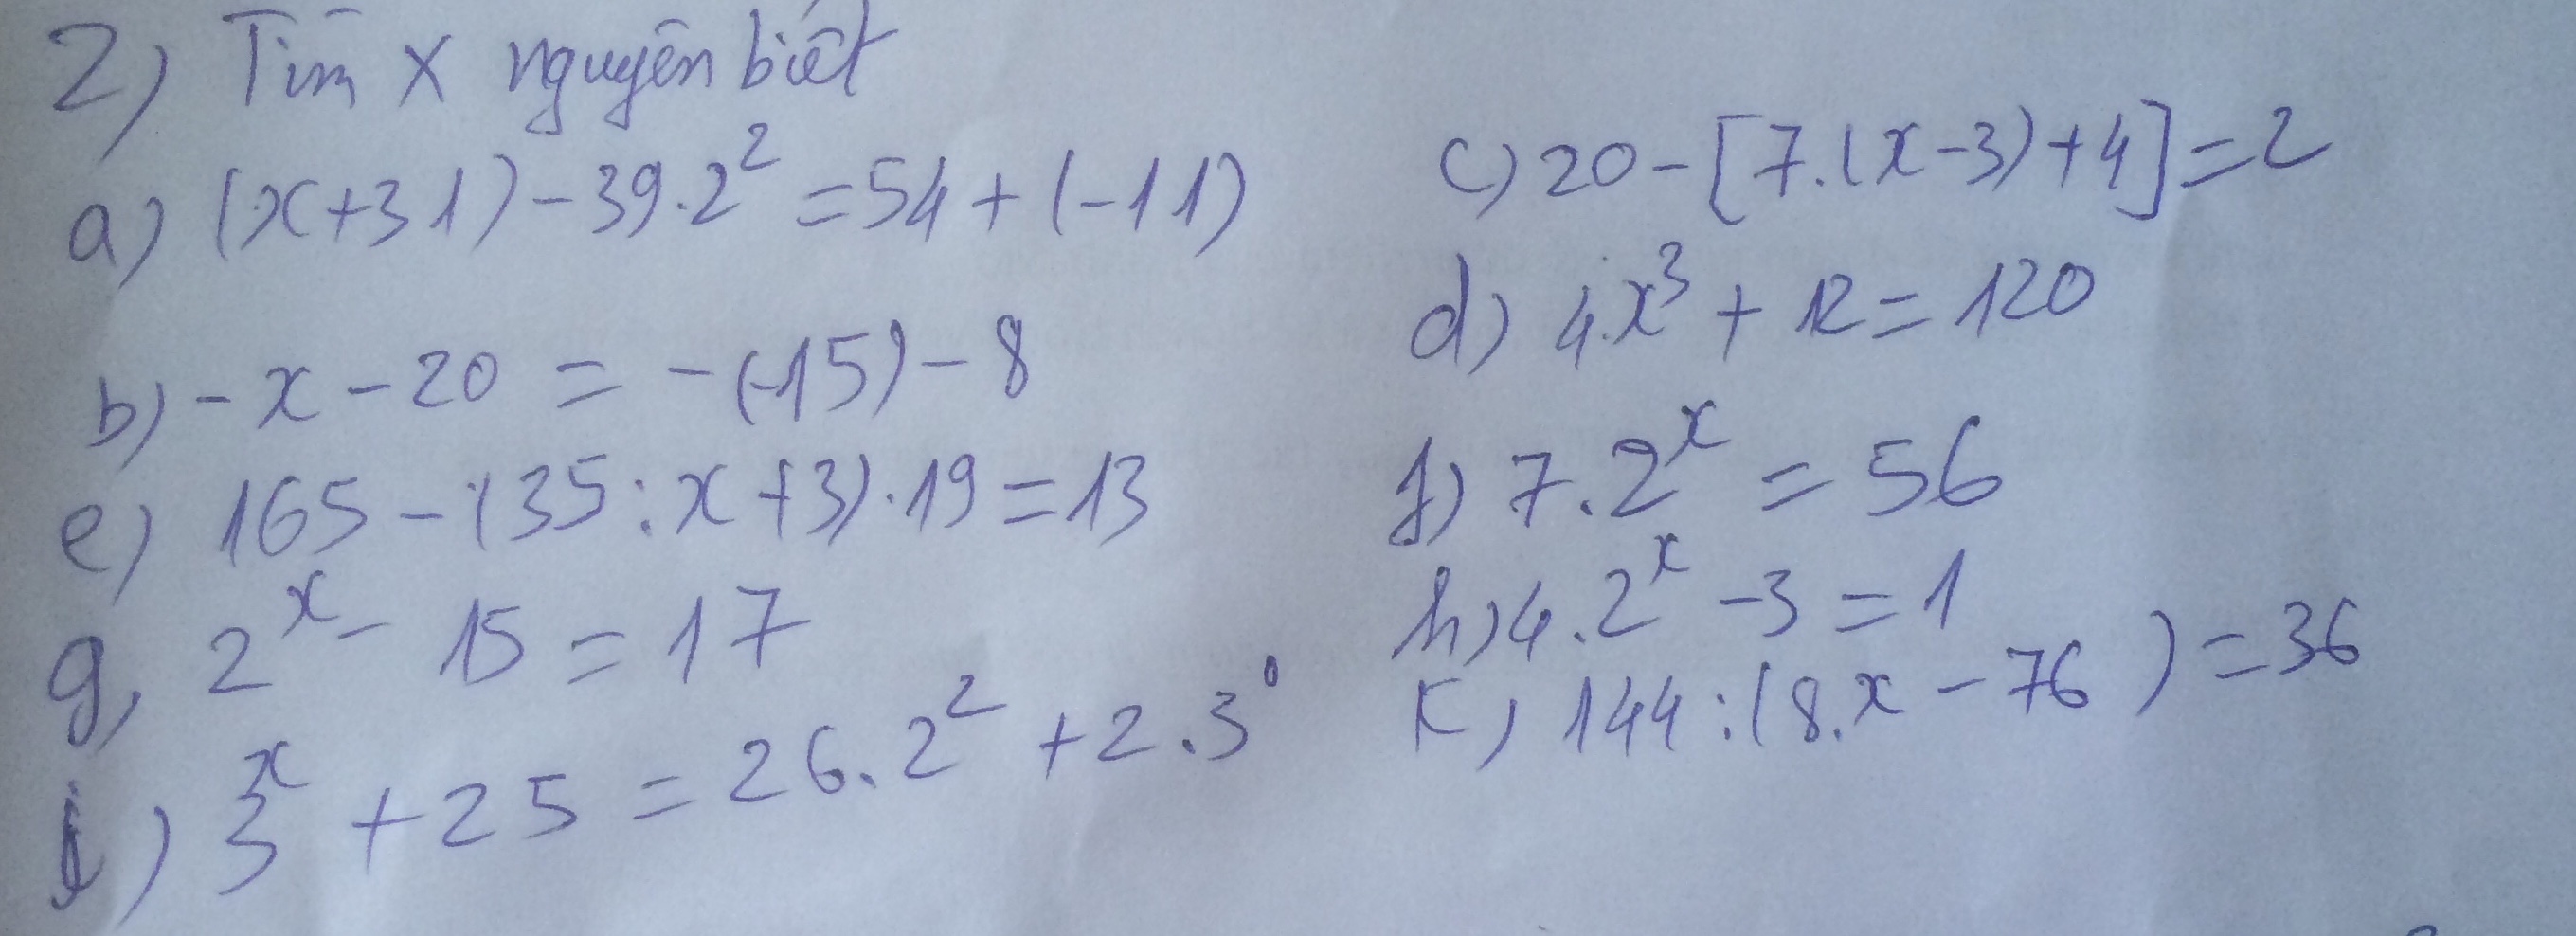 2) Tìm x nguyên biết
a) (x+31)-39.2² = 54+(-11)
c) 20-[7.(x-3)+4]=2
b) -x-20 = -(-15)-8
d) 4.x³ + 12 = 120
e) 165-(35:x+3).19=13
f) 7.2ˣ = 56
g, 2ˣ - 15 = 17
h) 4.2ˣ -3 = 1
i) 3ˣ +25 = 26.2² +2.3⁰
K) 144:(8.x-76)=36